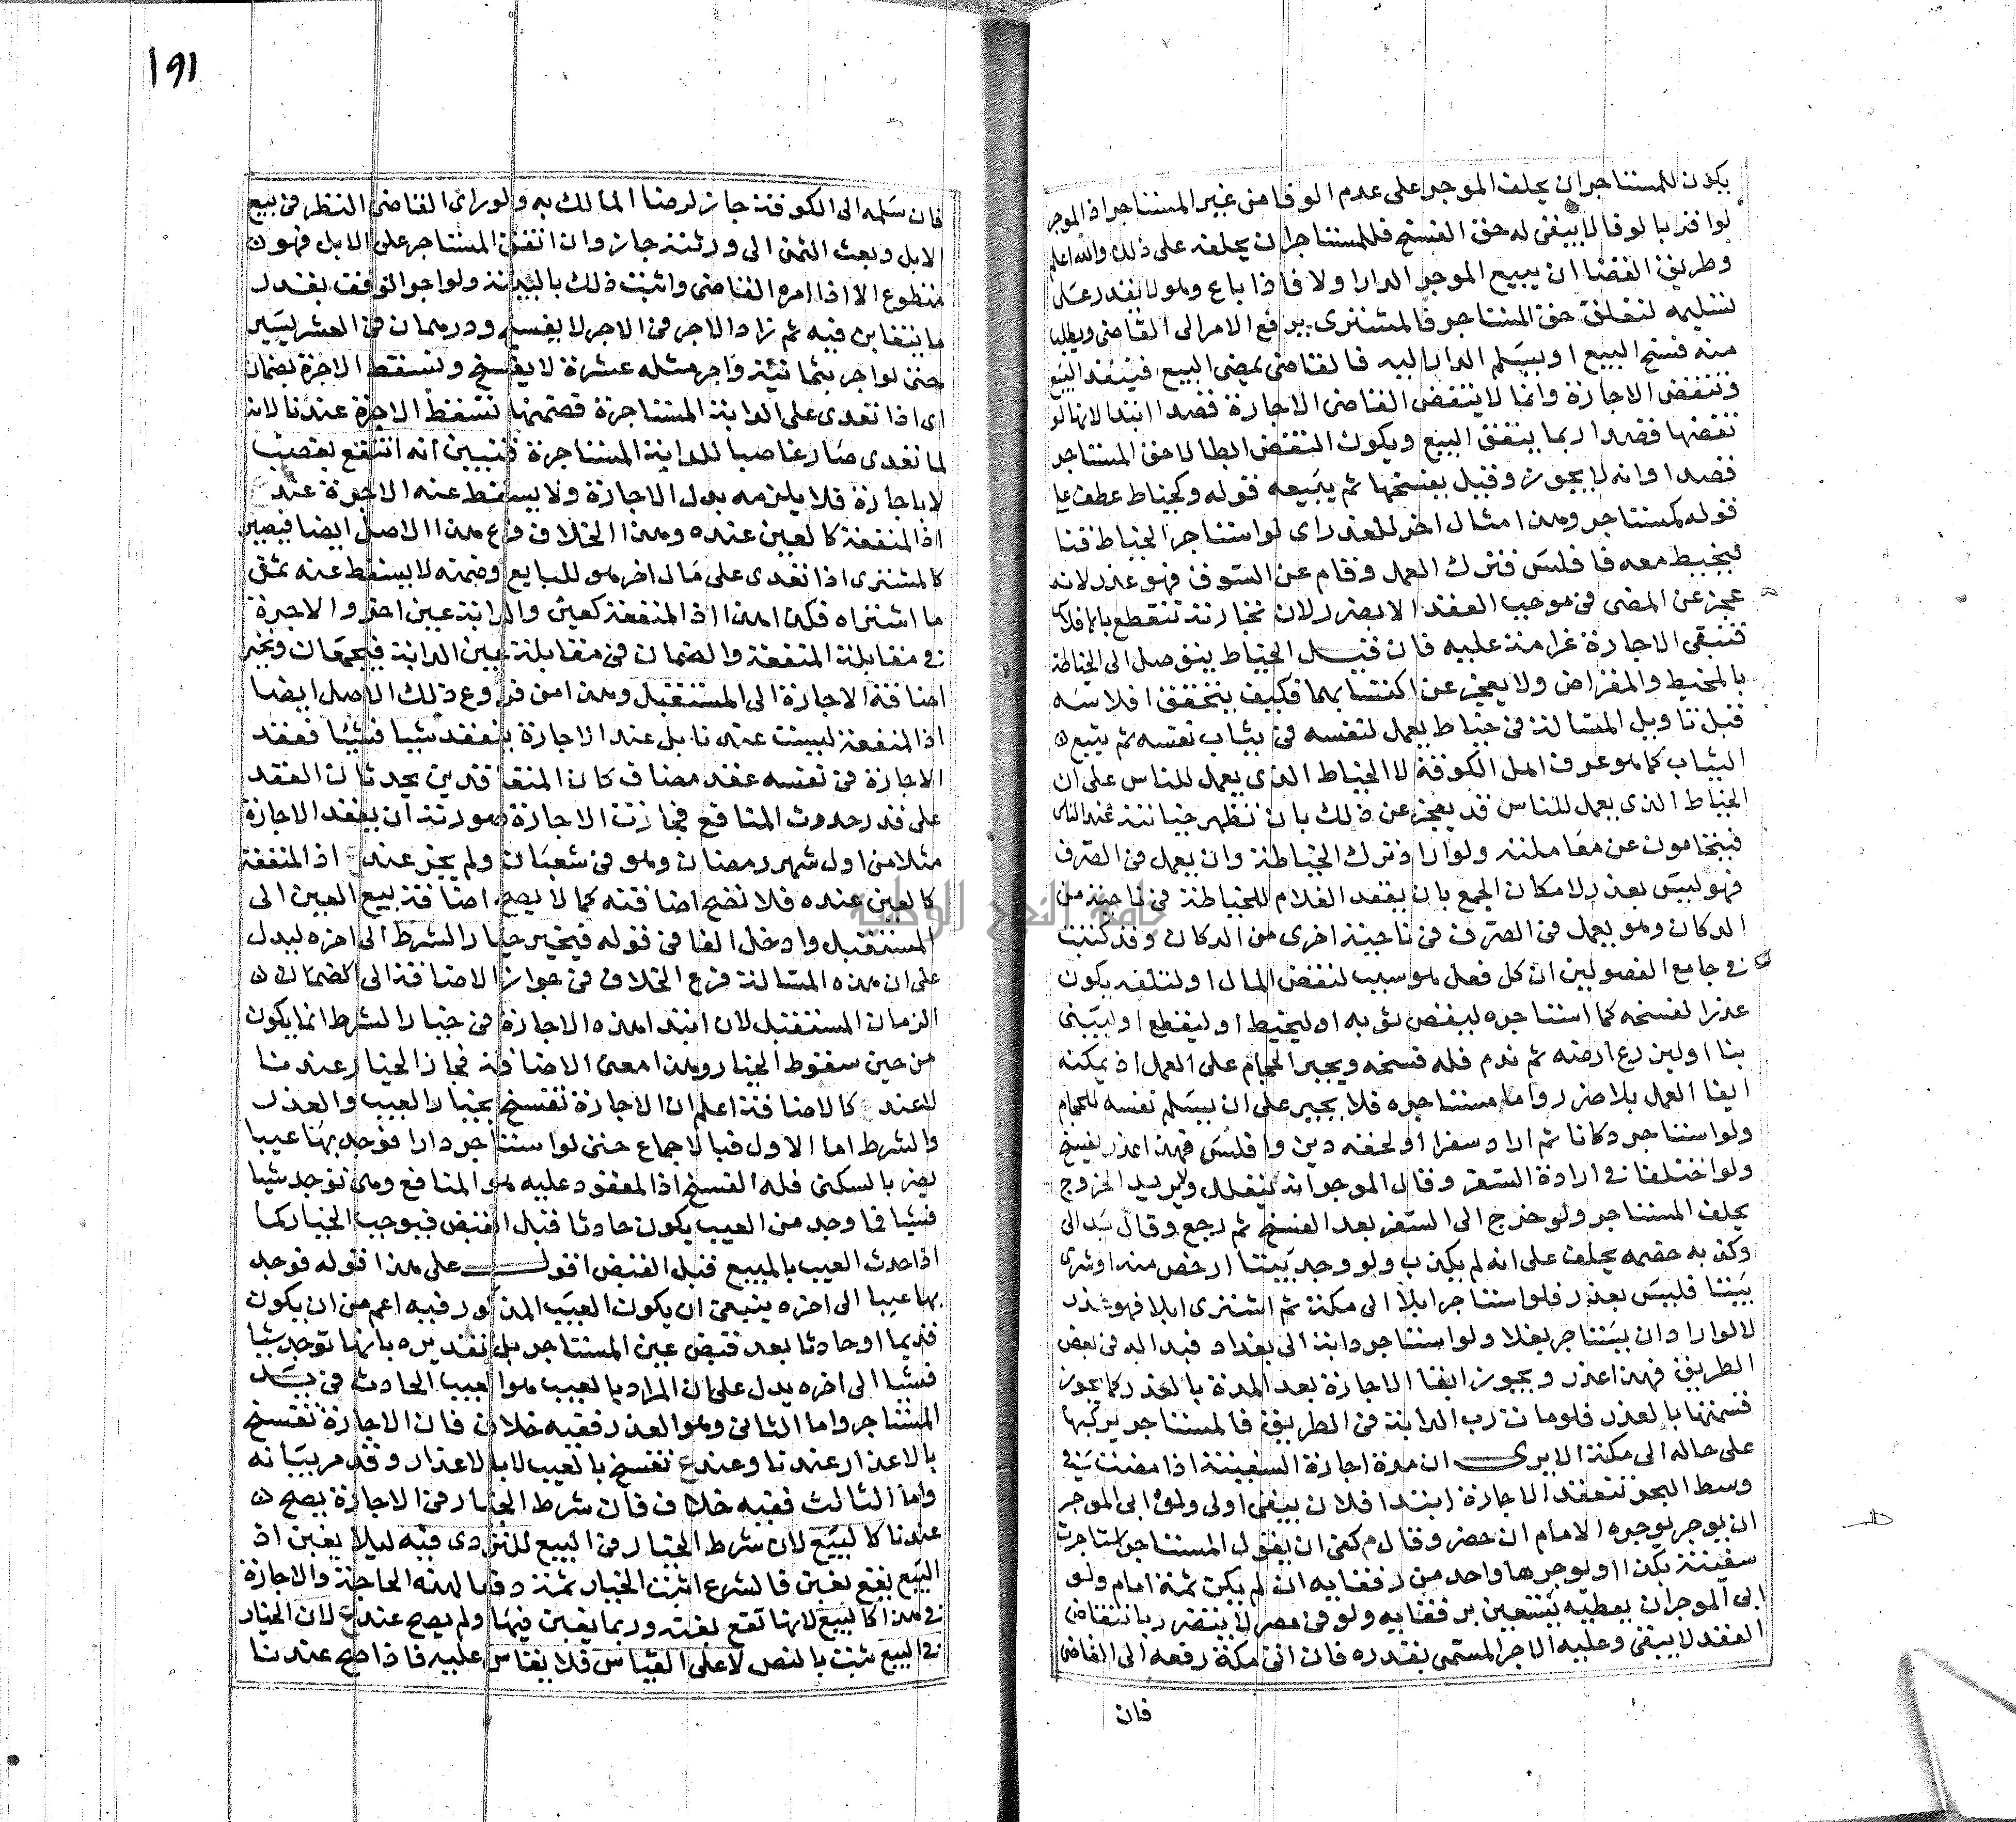 يكون للمستاجر ان يحلف الموجر على عدم الوفا من غير المستاجر اذ الموجر
لو اقر بالوفا لا يبقى له حق الفسخ فللمستاجر ان يحلفه على ذلك والله اعلم
وطريق القضا ان يبيع الموجر الدار اولا فاذا باع وهو لا يقدر على
تسليمه لتعلق حق المستاجر فالمشترى يرفع الامر الى القاضى ويطلب
منه فسخ البيع او يسلم الدار اليه فالقاضى يمضى البيع فينفذ البيع
وتنتقض الاجارة وانما لا ينقض القاضى الاجارة قصدا ابتدا لانها لو
نقضها قصدا ربما يتفق البيع ويكون النقض ابطالا لحق المستاجر
قصدا وانه لا يجوز وقيل يفسخها ثم يبيعه قوله وكخياط عطف على
قوله كمستاجر وهذا مثال اخر للعذر اى لو استاجر الخياط قنا
ليخيط معه فافلس فترك العمل وقام عن السوق فهو عذر لانه
عجز عن المضى فى موجب العقد الا بضرر لان تجارته تنقطع بالافلاس
فتبقى الاجارة غرامة عليه فان قيل الخياط يتوصل الى الخياطة
بالمخيط والمقراض ولا يعجز عن اكتسابهما فكيف يتحقق افلاسه
قيل تاويل المسالة فى خياط يعمل لنفسه فى ثياب نفسه ثم يبيع
الثياب كما هو عرف اهل الكوفة لا الخياط الذى يعمل للناس على ان
الخياط الذى يعمل للناس قد يعجز عن ذلك بان تظهر خيانته عند الناس
فيتحامون عن معاملته ولو اراد ترك الخياطة وان يعمل فى الصرف
فهو ليس بعذر لامكان الجمع بان يقعد الغلام للخياطة فى ناحية من
الدكان وهو يعمل فى الصرف فى ناحية اخرى من الدكان وقد كتبت
فى جامع الفصولين ان كل فعل هو سبب لنقص المال او لتلفه يكون
عذرا لفسخه كما استاجره ليقص ثوبه او ليخيط او ليقطع او ليبنى
بنا او ليزرع ارضه ثم ندم فله فسخه ويجبر الحجام على العمل اذ يمكنه
ايفا العمل بلا ضرر واما مستاجره فلا يجبر على ان يسلم نفسه للحجام
ولو استاجر دكانا ثم اراد سفرا او لحقه دين وافلس فهذا عذر يفسخ
ولو اختلفا فى ارادة السفر وقال الموجر انه يتعلل ولا يريد الخروج
يحلف المستاجر ولو خرج الى السفر بعد الفسخ ثم رجع وقال بدا لى
وكذبه خصمه يحلف على انه لم يكذب ولو وجد بيتا ارخص منه او شرى
بيتا فليس بعذر فلو استاجر ابلا الى مكة ثم اشترى ابلا فهو عذر
لا لو اراد ان يستاجر بغلا ولو استاجر دابة الى بغداد فبدا له فى بعض
الطريق فهذا عذر ويجوز ابقا الاجارة بعد المدة بالعذر كما يجوز
فسخها بالعذر فلو مات رب الدابة فى الطريق فالمستاجر يركبها
على حاله الى مكة الا يرى ان مدة اجارة السفينة اذا مضت فى
وسط البحر تنعقد الاجارة ابتدا فلان يبقى اولى ولو ابى الموجر
ان يوجر يوجره الامام ان حضر وقال م كفى ان يقول المستاجر استاجرت
سفينة بكذا او يوجرها واحد من رفقايه ان لم يكن ثمة امام ولو
ابى الموجر ان يعطيه يستعين برفقايه ولو فى مصر لا يتضرر بانتقاض
العقد لا يبقى وعليه الاجر المسمى بقدره فان اتى مكة رفعه الى القاضى
فان
191
فان سلمه الى الكوفة جاز لرضا المالك به ولو راى القاضى النظر فى بيع
الابل وبعث الثمن الى ورثته جاز وان انفق المستاجر على الابل فهو
متطوع الا اذا امره القاضى واثبت ذلك بالبينة ولو اجر الوقف بقدر
ما يتغابن فيه ثم زاد الاجر فى الاجر لا يفسخ ودرهمان فى العشر يسير
حتى لو اجر بثمانية واجر مثله عشرة لا يفسخ وتسقط الاجرة بضمان
اى اذا تعدى على الدابة المستاجرة فضمنها تسقط الاجرة عندنا لانه
لما تعدى صار غاصبا للدابة المستاجرة فتبين انه انتفع بغصب
لا باجارة فلا يلزمه بدل الاجارة ولا يسقط عنه الاجرة عند
اذ المنفعة كالعين عنده وهذا الخلاف فرع هذا الاصل ايضا فيصير
كالمشترى اذا تعدى على مال اخر هو للبايع وضمنه لا يسقط عنه ثمن
ما اشتراه فكذا هذا اذ المنفعة كعين والدابة عين اخر والاجرة
فى مقابلة المنفعة والضمان فى مقابلة عين الدابة فيجتمعان ويجبر
اضافة الاجارة الى المستقبل وهذا من فروع ذلك الاصل ايضا
اذ المنفعة ليست عندنا بل عند الاجارة ينعقد شيا فشيا فعقد
الاجارة فى نفسه عقد مضاف كان المتعاقدين يحدثان العقد
على قدر حدوث المنافع فجازت الاجارة صورته ان يعقد الاجارة
مثلا من اول شهر رمضان وهو فى شعبان ولم يجز عند اذ المنفعة
كالعين عنده فلا تصح اضافته كما لا يصح اضافة بيع العين الى
المستقبل وادخل الفا فى قوله فيخير خيار الشرط الى اخره ليدل
على ان هذه المسالة فرع الخلاف فى جواز الاضافة الى الضمان
الزمان المستقبل لان ابتدا هذه الاجارة فى خيار الشرط انما يكون
من حين سقوط الخيار وهذا معنى الاضافة فجاز الخيار عندنا
لا عند كالاضافة اعلم ان الاجارة تفسخ بخيار العيب والعذر
والشرط اما الاول فبالاجماع حتى لو استاجر دارا فوجد بها عيبا
يضر بالسكنى فله الفسخ اذ المعقود عليه هو المنافع وهى توجد شيا
فشيا فما وجد من العيب يكون حادثا قبل القبض فيوجب الخيار كما
اذا حدث العيب بالمبيع قبل القبض اقول على هذا قوله فوجد
بها عيبا الى اخره ينبغى ان يكون العيب المذكور فيه اعم من ان يكون
قديما او حادثا بعد قبض عين المستاجر بل تقديره بانها توجد شيا
فشيا الى اخره يدل على ان المراد بالعيب هو العيب الحادث فى يد
المستاجر واما الثانى وهو العذر ففيه خلاف فان الاجارة تفسخ
بالاعذار عندنا وعند تفسخ بالعيب لا بالاعذار وقد مر بيانه
واما الثالث ففيه خلاف فان شرط الخيار فى الاجارة يصح
عندنا كالبيع لان شرط الخيار فى البيع للتروى فيه ليلا يغبن اذ
البيع يقع بغبن فالشرع اثبت الخيار ثمة دفعا لهذه الحاجة والاجارة
فى هذا كالبيع لانها تقع بغتة وربما يغبن فيها ولم يصح عند لان الخيار
فى البيع ثبت بالنص لا على القياس فلا يقاس عليه فاذا صح عندنا
جامعة النجاح الوطنية